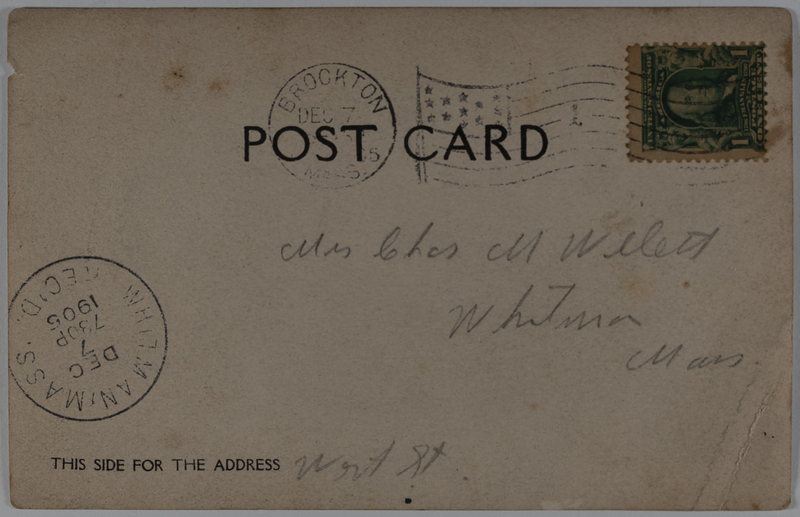 BROCKTON
DEC 7
MASS
POST CARD
1
Mrs Chas M Willett
Whitman
Mass
WHITMAN, MASS.
DEC
7
730P
1905
REC'D.
THIS SIDE FOR THE ADDRESS West St.